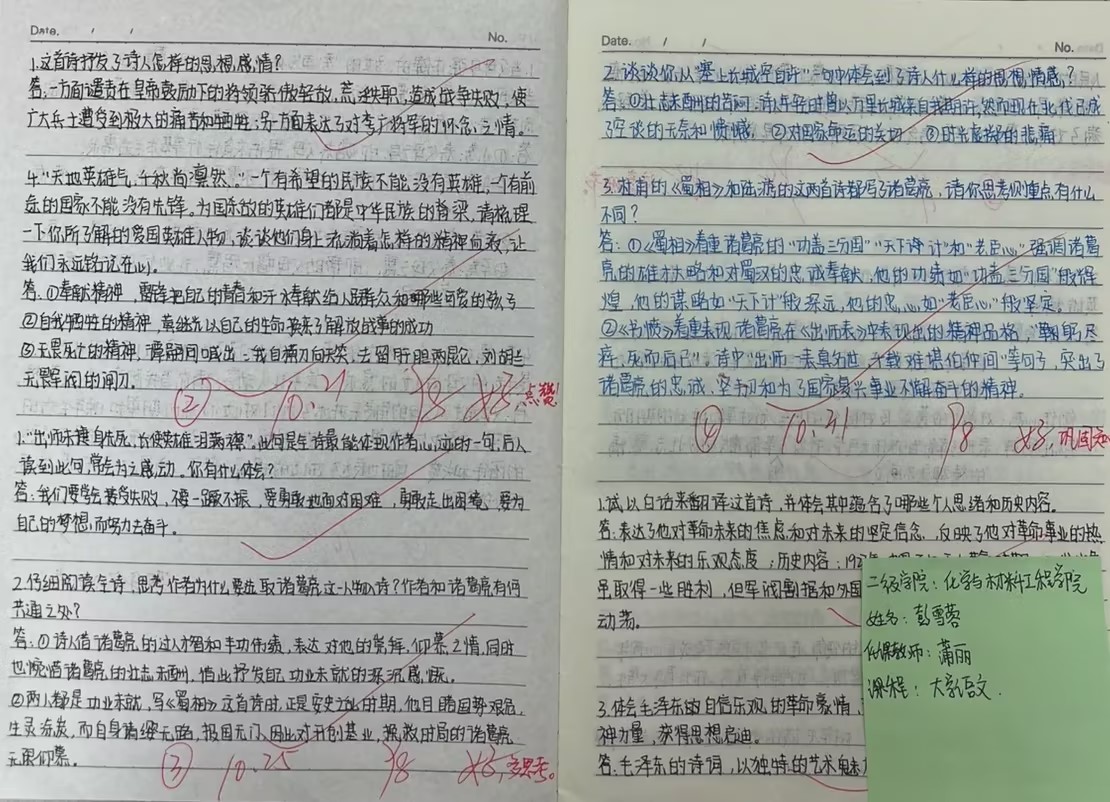 Date. / /
No.
1.这首诗抒发了诗人怎样的思想感情?
答:一方面谴责在皇帝鼓励下的将领骄傲轻敌,荒淫失职,造成战争失败,使
广大兵士遭受到极大的痛苦和牺牲;另一方面表达了对李广将军的怀念之情。
4."天地英雄气,千秋尚凛然。"一个有希望的民族不能没有英雄,一个有前
途的国家不能没有先锋。为国杀敌的英雄们都是中华民族的脊梁,请梳理
一下你所了解的爱国英雄人物,谈谈他们身上流淌着怎样的精神血液,让
我们永远铭记在心。
答:①奉献精神,雷锋把自己的青春和汗水奉献给人民群众和哪些可爱的孩子
②自我牺牲的精神,董继先以自己的生命换来了解放战争的成功
③无畏死亡的精神,谭嗣同喊出:我自横刀向天笑,去留肝胆两昆仑,刘胡兰
无畏军阀的闸刀。
② 10.21 98 好,点赞!
1."出师未捷身先死,长使英雄泪满襟"此句是全诗最能体现作者心迹的一句,后人
读到此句,常会为之感动。你有什么体会?
答:我们要学会接受失败,不要一蹶不振,要勇敢地面对困难,勇敢走出困境,要为
自己的梦想而努力去奋斗。
2.仔细阅读全诗,思考作者为什么要选取诸葛亮这一人物入诗?作者和诸葛亮有何
共通之处?
答:①诗人借诸葛亮的过人才智和丰功伟绩,表达对他的赞舞、仰慕之情,同时
也惋惜诸葛亮的壮志未酬,借此抒发自己功业未就的深沉感慨。
②两人都是功业未就,写《蜀相》这首诗时,正是安史之乱时期,他目睹国势艰危,
生灵涂炭,而自身请缨无路,报国无门,因此对开创基业,挽救时局的诸葛亮
无限仰慕。
③ 10.25 98 好,多思考。
Date. / /
No.
2.谈谈你从"塞上长城空自许"一句中体会到了诗人什么样的思想情感?
答:①壮志未酬的苦闷:诗人年轻时曾以万里长城来自我期许,然而现在北伐已成
了空谈的无奈和愤慨 ②对国家命运的关切 ③时光虚掷的悲痛
3.杜甫的《蜀相》和陆游的这两首诗都写了诸葛亮,请你思考侧重点有什么
不同?
答:①《蜀相》着重诸葛亮的"功盖三分国""天下计"和"老臣心"强调诸葛
亮的雄才大略和对蜀汉的忠诚奉献,他的功绩如"功盖三分国"般辉
煌,他的谋略如"天下计"般深远,他的忠心如"老臣心"般坚定。
②《书愤》着重表现诸葛亮在《出师表》中表现出的精神品格,"鞠躬尽
瘁,死而后已"。诗中"出师一表真名世,千载谁堪伯仲间"等句子,突出了
诸葛亮的忠诚、坚韧和为了国家复兴事业不懈奋斗的精神。
④ 10.31 98 好,巩固知
1.试以白话来翻译这首诗,并体会其中蕴含了哪些个人思绪和历史内容。
答:表达了他对革命未来的焦虑和对未来的坚定信念,反映了他对革命事业的热
情和对未来的乐观态度;历史内容:
虽取得一些胜利,但军阀割据和外国
动荡。
3.体会毛泽东的自信乐观的革命豪情,
神力量,获得思想启迪。
答:毛泽东的诗词,以独特的艺术魅力
二级学院:化学与材料工程学院
姓名:彭雪蓉
任课教师:蒲丽
课程:大学语文.